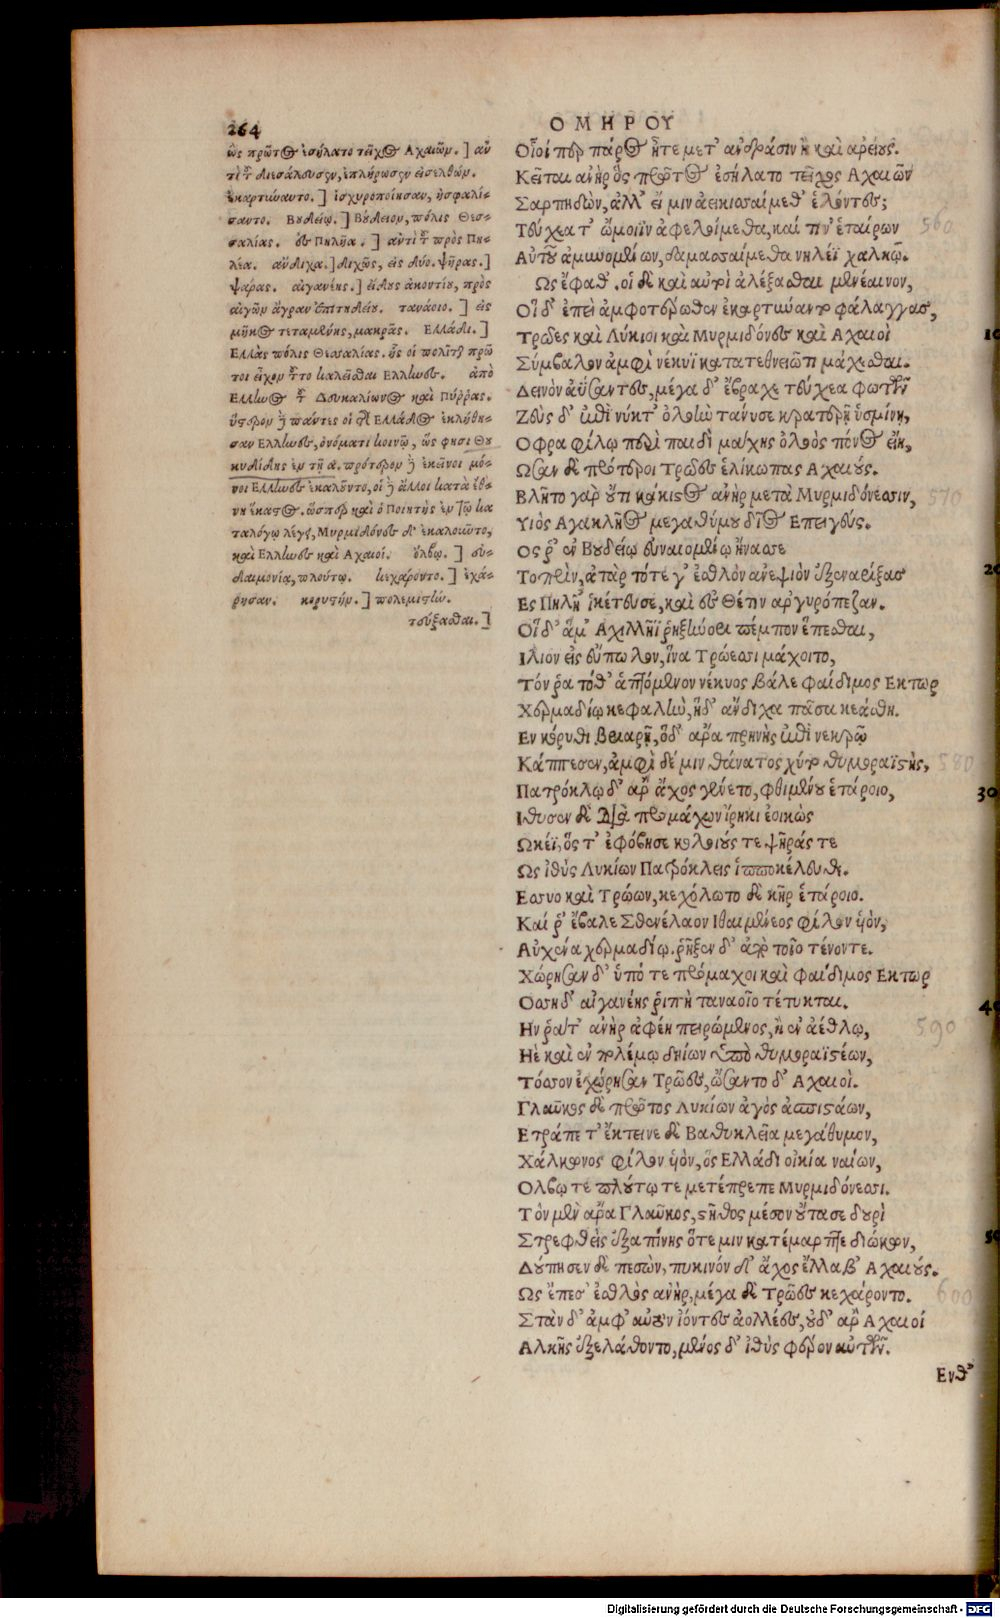 264
ΟΜΗΡΟΥ
ὡς πρῶτος ἐσήλατο τεῖχος Ἀχαιῶν.] ἀν
τὶ τοῦ διεσάλευσεν, ἐπλήρωσεν εἰσελθών.
ἐκαρτύναντο.] ἰσχυροποίησαν, ἠσφαλί-
σαντο. Βυδείῳ.] Βύδειον, πόλις Θεσ-
σαλίας. ἐς Πηλῆα.] ἀντὶ τοῦ πρὸς Πη-
λέα. ἄνδιχα.] διχῶς, εἰς δύο. ψῆρας.]
ψᾶρας. αἰγανέης.] εἶδος ἀκοντίου, πρὸς
αἰγῶν ἄγραν ἐπιτηδείου. ταναοῖο.] εἰς
μῆκος τεταμένης, μακρᾶς. Ελλάδι.]
Ελλὰς πόλις Θεσσαλίας. ἧς οἱ πολῖται πρῶ
τοι εἶχον τὸ καλεῖσθαι Ελληνες. ἀπὸ
Ελληνος τοῦ Δευκαλίωνος καὶ Πύρρας.
ὕστερον δὲ πάντες οἱ τῆς Ελλάδος ἐκλήθη-
σαν Ελληνες, ὀνόματι κοινῷ, ὥς φησι Θου
κυδίδης ἐν τῇ α. πρότερον δὲ ἐκεῖνοι μό-
νοι Ελληνες ἐκαλοῦντο, οἱ δὲ ἄλλοι κατὰ ἔθ-
νη ἕκαστος. ὥσπερ καὶ ὁ Ποιητὴς ἐν τῷ κα
ταλόγῳ λέγει, Μυρμιδόνες δ' ἐκαλοιῦτο,
καὶ Ελληνες καὶ Ἀχαιοί. ὄλβῳ.] εὐ-
δαιμονία, πλούτῳ. κεχάροντο.] ἐχά-
ρησαν. κορυστήν.] πολεμιστήν.
τεύξασθαι.]
Οἷοί περ πάρος ἦτε μετ' ἀνδράσιν ἢ καὶ ἀρείους.
Κεῖται ἀνὴρ ὃς πρῶτος ἐσήλατο τεῖχος Ἀχαιῶν
Σαρπηδών, ἀλλ' εἴ μιν ἀεικισσαίμεθ' ἑλόντες;
Τεύχεα τ' ὤμοιϊν ἀφελοίμεθα, καί τιν' ἑταίρων 560
Αὐτοῦ ἀμυνομένων, δαμασσαίμεθα νηλέϊ χαλκῷ.
Ως ἔφαθ', οἱ δὲ καὶ αὐτοὶ ἀλέξασθαι μενέαινον,
Οἵδ' ἐπεὶ ἀμφοτέρωθεν ἐκαρτύναντο φάλαγγας,
Τρῶες καὶ Λύκιοι καὶ Μυρμιδόνες καὶ Ἀχαιοὶ 10
Σύμβαλον ἀμφὶ νέκυϊ κατατεθνειῶτι μάχεσθαι.
Δεινὸν ἀΰσαντες, μέγα δ' ἔβραχε τεύχεα φωτῶν
Ζεὺς δ' ἐπὶ νύκτ' ὀλοὴν τάνυσε κρατερῇ ὑσμίνῃ,
Οφρα φίλῳ περὶ παιδὶ μάχης ὀλοὸς πόνος εἴη,
Ωσαν δὲ πρότεροι Τρῶες ἑλίκωπας Ἀχαιούς.
Βλῆτο γὰρ οὔτι κάκιστος ἀνὴρ μετὰ Μυρμιδόνεσσιν, 570
Υἱὸς Ἀγακλῆος μεγαθύμου δῖος Επειγεύς.
Ος ῥ' ἐν Βυδείῳ εὐναιομένῳ ἤνασσε
Τοπρὶν, ἀτὰρ τότε γ' ἐσθλὸν ἀνεψιὸν ἐξεναρίξας 20
Ες Πηλῆ' ἱκέτευσε, καὶ ἐς Θέτιν ἀργυρόπεζαν.
Οἵδ' ἅμ' Ἀχιλλῆϊ ῥηξήνορι πέμπον ἕπεσθαι,
Ιλιον εἰς εὔπωλον, ἵνα Τρώεσσι μάχοιτο,
Τόν ῥα τόθ' ἁπτόμενον νέκυος βάλε φαίδιμος Εκτωρ
Χερμαδίῳ κεφαλὴν, ἡδ' ἄνδιχα πᾶσα κεάσθη.
Εν κόρυθι βριαρῇ, ὅδ' ἄρα πρηνὴς ἐπὶ νεκρῷ
Κάππεσεν, ἀμφὶ δέ μιν θάνατος χύτο θυμοραϊστὴς, 580
Πατρόκλῳ δ' ἄρ' ἄχος γένετο, φθιμένου ἑτάροιο, 30
Ιθυσεν δὲ διὰ προμάχων ἴρηκι ἐοικὼς
Ωκέϊ, ὅς τ' ἐφόβησε κολοιούς τε ψῆράς τε
Ως ἰθὺς Λυκίων Πατρόκλεις ἱπποκέλευθε.
Εσσυο καὶ Τρώων, κεχόλωτο δὲ κῆρ ἑτάροιο.
Καί ῥ' ἔβαλε Σθενέλαον Ιθαιμένεος φίλον υἱόν,
Αὐχένα χερμαδίῳ. ῥῆξεν δ' ἀπὸ τοῖο τένοντε.
Χώρησαν δ' ὑπό τε πρόμαχοι καὶ φαίδιμος Εκτωρ
Οσση δ' αἰγανέης ῥιπὴ ταναοῖο τέτυκται. 40
Ην ῥα τ' ἀνὴρ ἀφέῃ πειρώμενος, ἢ ἐν ἀέθλῳ, 590
Ηὲ καὶ ἐν πολέμῳ δηΐων ὑπὸ θυμοραϊστέων,
Τόσσον ἐχώρησαν Τρῶες, ὤσαντο δ' Ἀχαιοὶ.
Γλαῦκος δὲ πρῶτος Λυκίων ἀγὸς ἀσπιστάων,
Ετράπετ' ἔκτεινε δὲ Βαθυκλεῖα μεγάθυμον,
Χάλκωνος φίλον υἱόν, ὃς Ελλάδι οἰκία ναίων,
Ολβῳ τέ πλούτῳ τε μετέπρεπε Μυρμιδόνεσσι.
Τὸν μὲν ἄρα Γλαῦκος, στῆθος μέσον οὔτασε δουρὶ
Στρεφθεὶς ἐξαπίνης ὅτε μιν κατέμαρπτε διώκων, 50
Δούπησεν δὲ πεσὼν, πυκινόν δ' ἄχος ἔλλαβ' Ἀχαιούς.
Ως ἔπεσ' ἐσθλὸς ἀνὴρ, μέγα δὲ Τρῶες κεχάροντο. 600
Στὰν δ' ἀμφ' αὐτὸν ἰόντες ἀολλέες, οὐδ' ἄρ' Ἀχαιοί
Αλκῆς ἐξελάθοντο, μένος δ' ἰθὺς φέρον αὐτῶν.
Ενθ'
Digitalisierung gefördert durch die Deutsche Forschungsgemeinschaft - DFG